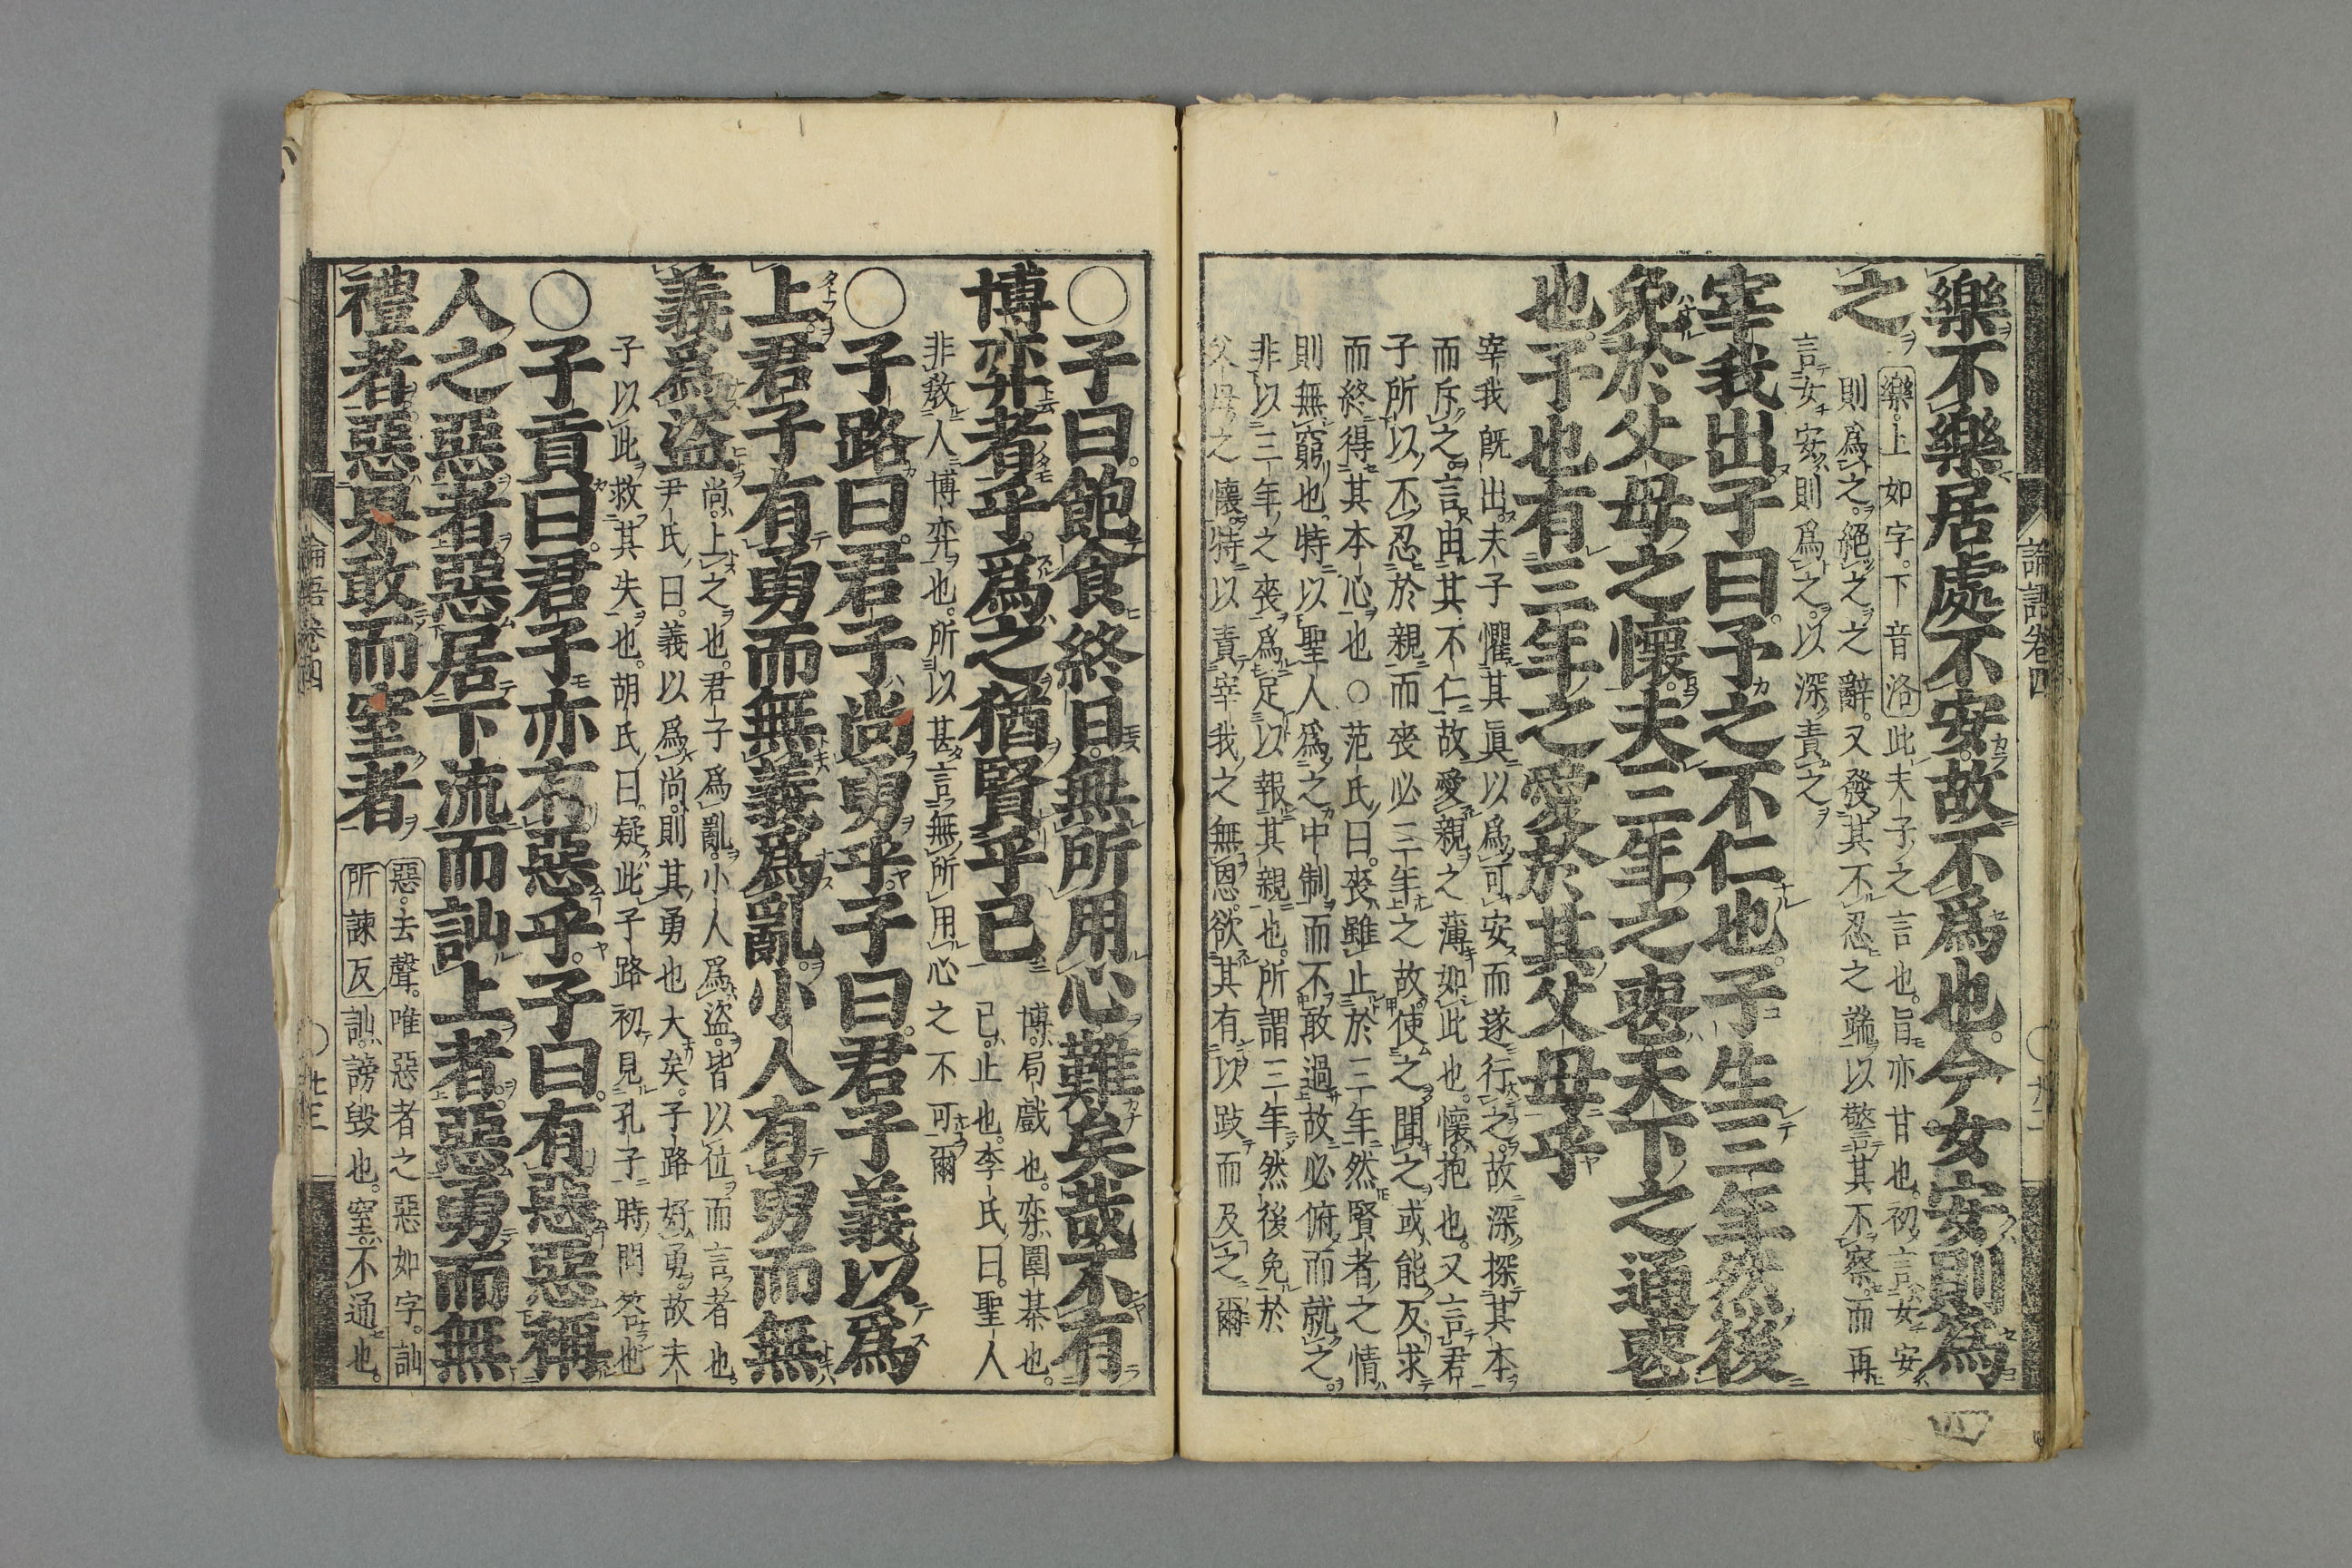 論語卷四
樂不樂居處不安故不爲也今女安則爲
之
樂上如字下音洛此夫子之言也旨亦甘也初言女安
則爲之絕之之辭又發其不忍之端以警其不察而再
言女安則爲之以深責之
宰我出子曰予之不仁也子生三年然後
免於父母之懷夫三年之喪天下之通喪
也予也有三年之愛於其父母乎
宰我既出夫子懼其眞以爲可安而遂行之故深探其本
而斥之言由其不仁故愛親之薄如此也懷抱也又言君
子所以不忍於親而喪必三年之故使之聞之或能反求
而終得其本心也○范氏曰喪雖止於三年然賢者之情
則無窮也特以聖人爲之中制而不敢過故必俯而就之
非以三年之喪爲足以報其親也所謂三年然後免於
父母之懷特以責宰我之無恩欲其有以跂而及之爾
○子曰飽食終日無所用心難矣哉不有
博弈者乎爲之猶賢乎已
博局戲也弈圍棊也
已止也李氏曰聖人
非敎人博弈也所以甚言無所用心之不可爾
○子路曰君子尚勇乎子曰君子義以爲
上君子有勇而無義爲亂小人有勇而無
義爲盜
尚上之也君子爲亂小人爲盜皆以位而言者也
尹氏曰義以爲尚則其勇也大矣子路好勇故夫
子以此救其失也胡氏曰疑此子路初見孔子時問答也
○子貢曰君子亦有惡乎子曰有惡惡稱
人之惡者惡居下流而訕上者惡勇而無
禮者惡果敢而窒者
惡去聲唯惡者之惡如字訕
所諫反訕謗毀也窒不通也
論語卷四